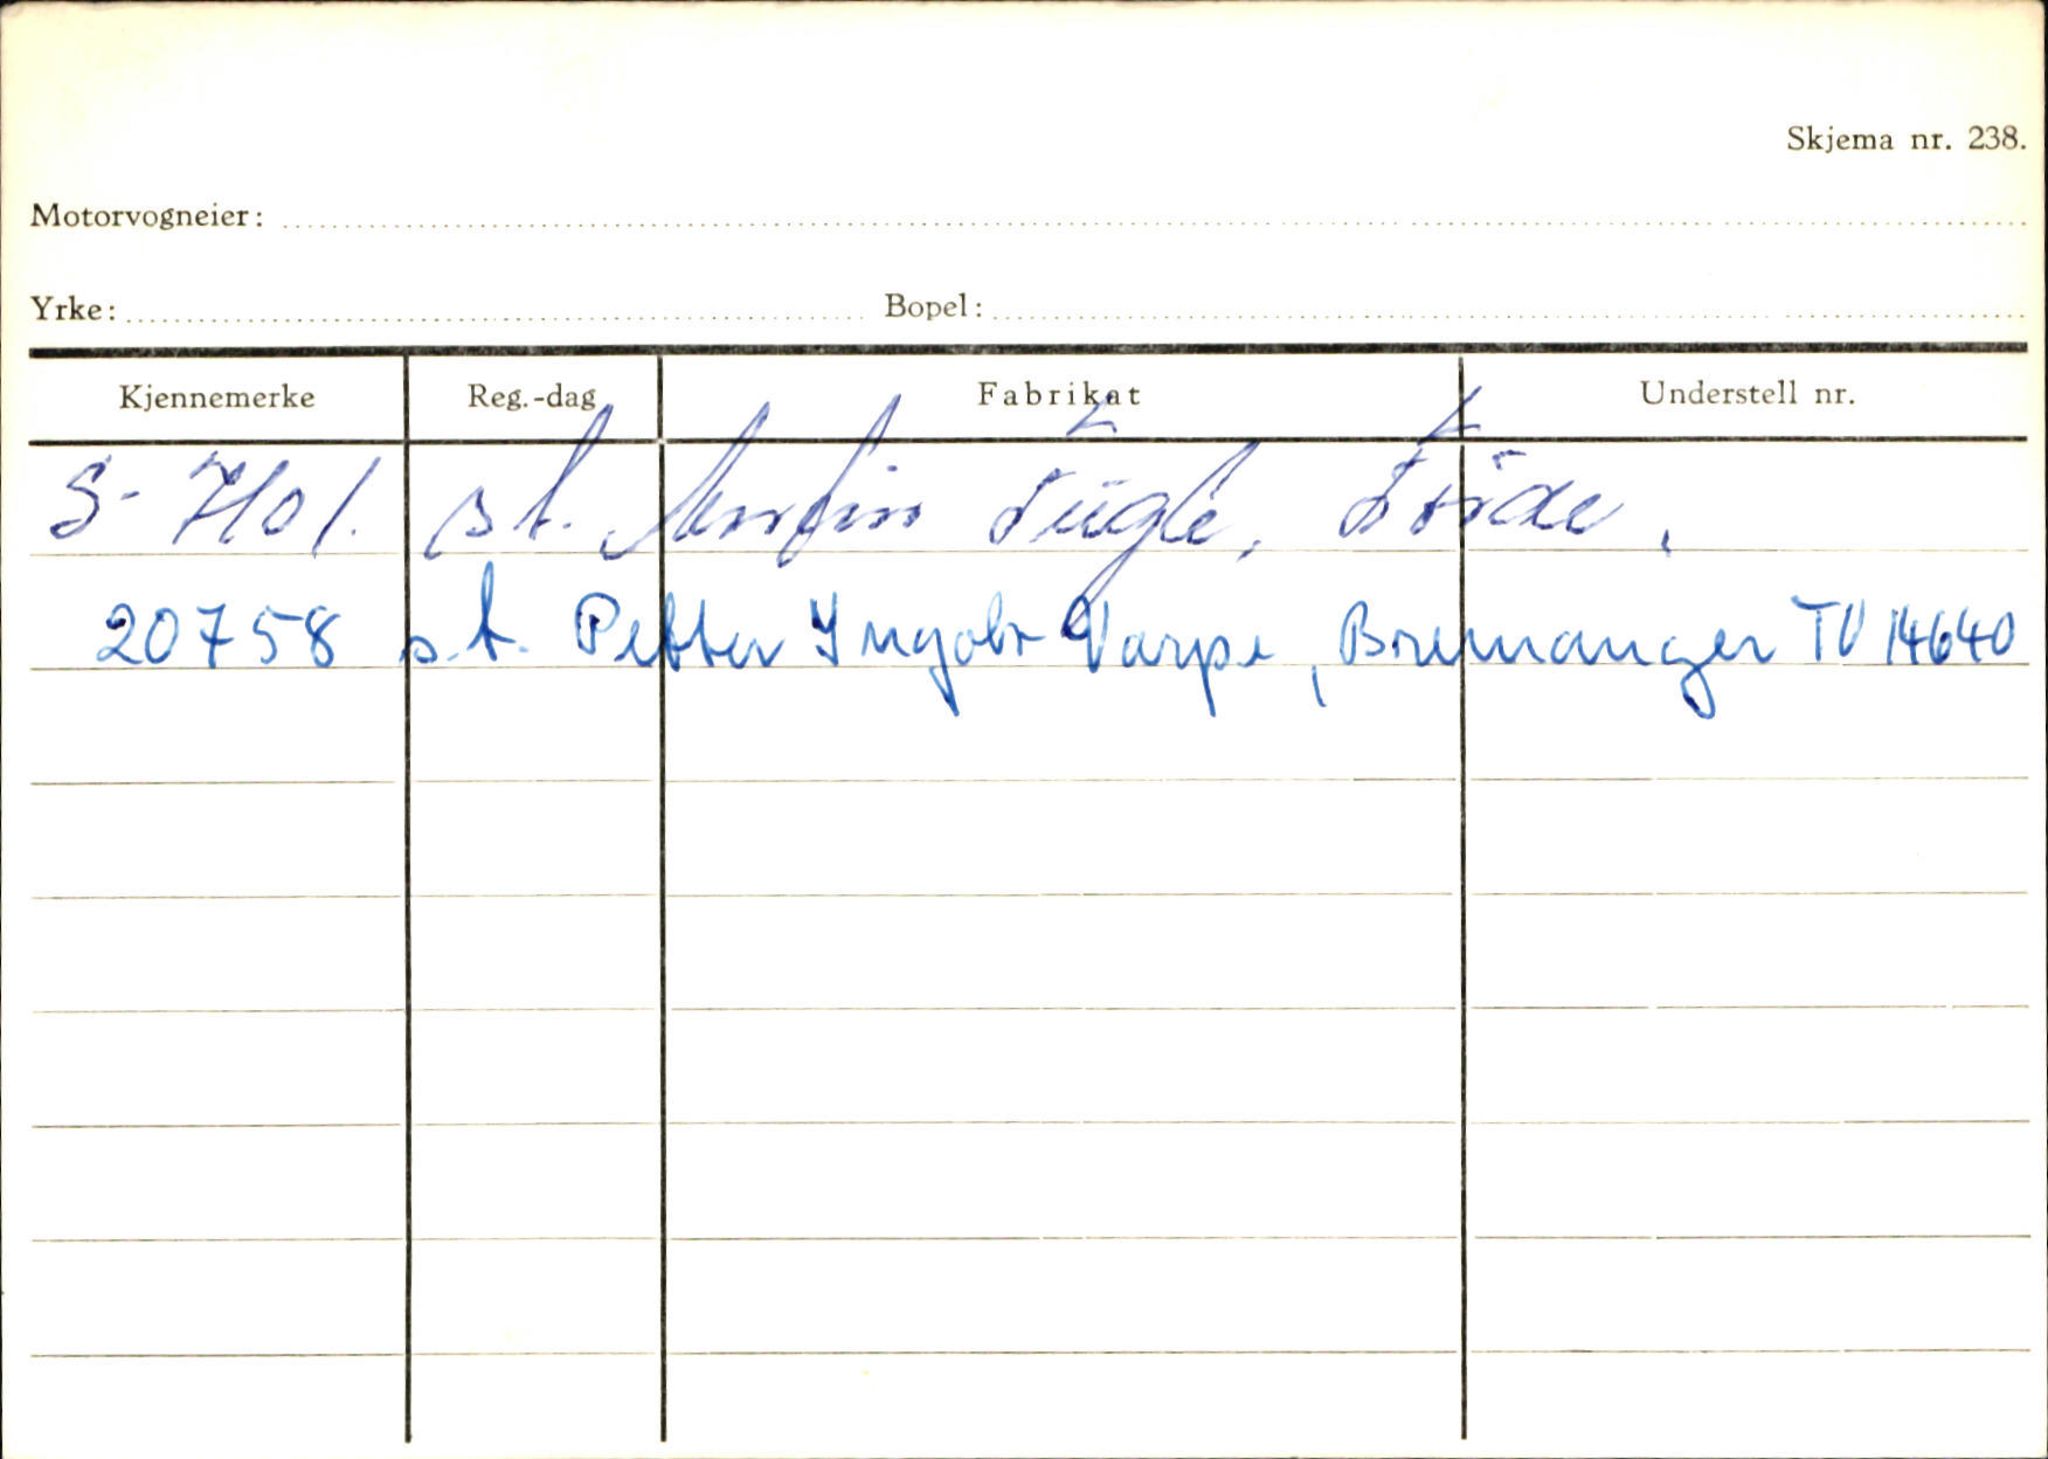 Skjema nr. 238.
Motorvogneier:
Yrke: Bopel:
Kjennemerke Reg.-dag Fabrikat Understell nr.
S- 7101. st. Arnfinn Fugle, Förde,
20758 s.t. Petter Ingolv Varpe, Bremanger TU 14640